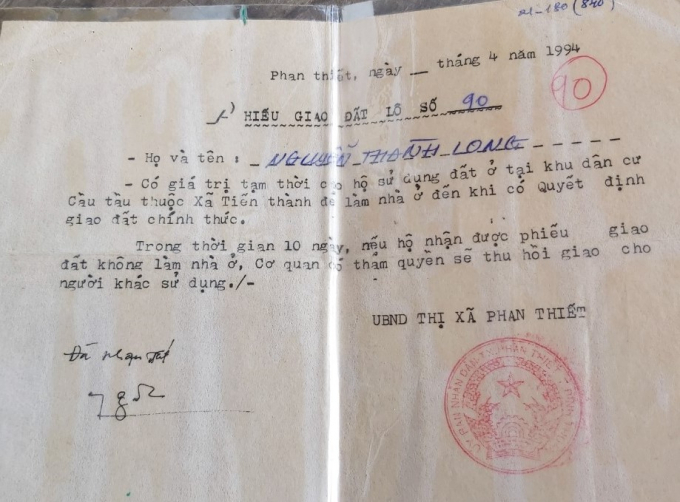 21-180 (840)
Phan thiết, ngày __ tháng 4 năm 1994
90
HIẾU GIAO ĐẤT LÔ SỐ 90
- Họ và tên : NGUYỄN THÀNH LONG
- Có giá trị tạm thời cho hộ sử dụng đất ở tại khu dân cư
Cầu tầu thuộc Xã Tiến thành để làm nhà ở đến khi có Quyết định
giao đất chính thức.
Trong thời gian 10 ngày, nếu hộ nhận được phiếu giao
đất không làm nhà ở, Cơ quan có thẩm quyền sẽ thu hồi giao cho
người khác sử dụng./-
UBND THỊ XÃ PHAN THIẾT
Đã nhận đất
ỦY BAN NHÂN DÂN TX PHAN THIẾT